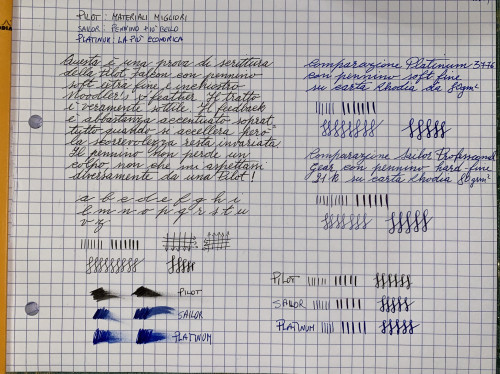 PILOT: MATERIALI MIGLIORI
SAILOR: PENNINO PIÙ BELLO
PLATINUM: LA PIÙ ECONOMICA
Questa è una prova di scrittura
della Pilot Falcon con pennino
soft extra fine e inchiostro
Noodler's x-feather. Il tratto
è veramente sottile. Il feedback
è abbastanza accentuato soprat
tutto quando si accellera però
la scorrevolezza resta invariata
Il pennino non perde un
colpo non che mi aspettassi
diversamente da una Pilot!
a b c d e f g h i
l m n o p q r s t u
v z
PILOT
SAILOR
PLATINUM
Comparazione Platinum 3776
con pennino soft fine
su carta Rhodia da 80gm²
Comparazione Sailor Professional
Gear con pennino hard fine
21K su carta Rhodia 80gm²
PILOT
SAILOR
PLATINUM